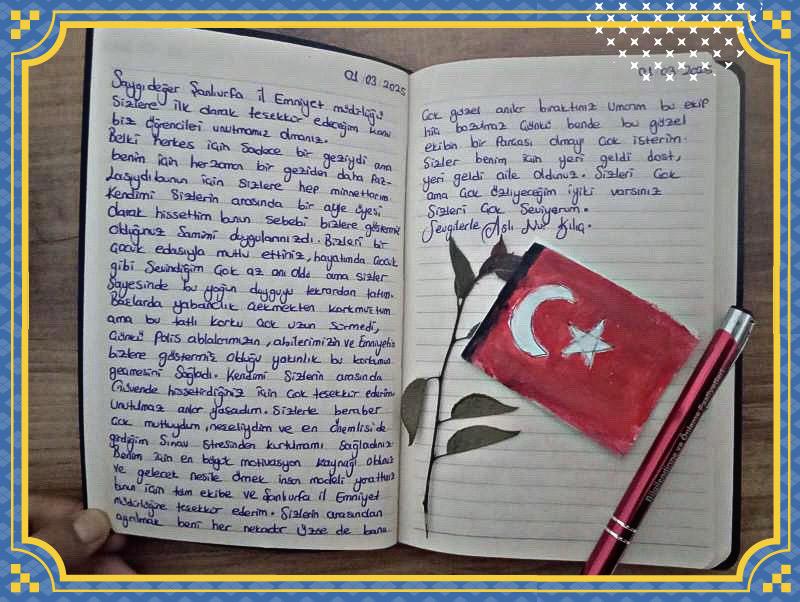 01/03/2025
Saygıdeğer Şanlıurfa il Emniyet müdürlüğü
Sizlere ilk olarak teşekkür edeceğim konu
biz öğrencileri unutmamız olmanız.
Belki herkes için Sadece bir geziydi ama
benim için herzaman bir geziden daha Faz-
Lasıydı bunun için sizlere hep minnettarım.
Kendimi Sizlerin arasında bir aile üyesi
olarak hissettim bunun sebebi bizlere göstermiş
olduğunuz Samimi duygularınızdı. Bizleri bir
çocuk edasıyla mutlu ettiniz, hayatımda çocuk
gibi Sevindiğim çok az anı oldu ama sizler
Sayesinde bu yoğun duyguyu tekrardan tattım.
Bazılarda yabancılık çekmekten korkmuştum
ama bu tatlı korku çok uzun sürmedi,
Çünkü Polis ablalarımızın, abilerimizin ve Emniyetin
bizlere göstermiş olduğu yakınlık bu korkumun
geçmesini Sağladı. Kendimi Sizlerin arasında
Güvende hissettirdiğiniz için çok teşekkür ederim
Unutulmaz anlar yaşadım. Sizlerle beraber
çok mutluydum, neşeliydim ve en önemlisi de
girdiğim Sınav stresinden kurtulmamı Sağladınız
Benim için en büyük motivasyon kaynağı oldunuz
ve gelecek nesile örnek insan modeli yarattınız
bunun için tüm ekibe ve Şanlıurfa il Emniyet
müdürlüğüne teşekkür ederim. Sizlerin arasından
ayrılmak beni her nekadar Üzse de bana
01/03/2025
Çok güzel anılar bıraktınız Umarım bu ekip
hiç bozulmaz Çünkü bende bu güzel
ekibin bir Parçası olmayı çok isterim.
Sizler benim için yeri geldi dost,
yeri geldi aile oldunuz. Sizleri Çok
ama Çok özliyeceğim iyiki varsınız
Sizleri Çok Seviyorum.
Sevgilerle Aslı Nur Kılıç.
Bilgilendirme ve Önleme Faaliyetleri